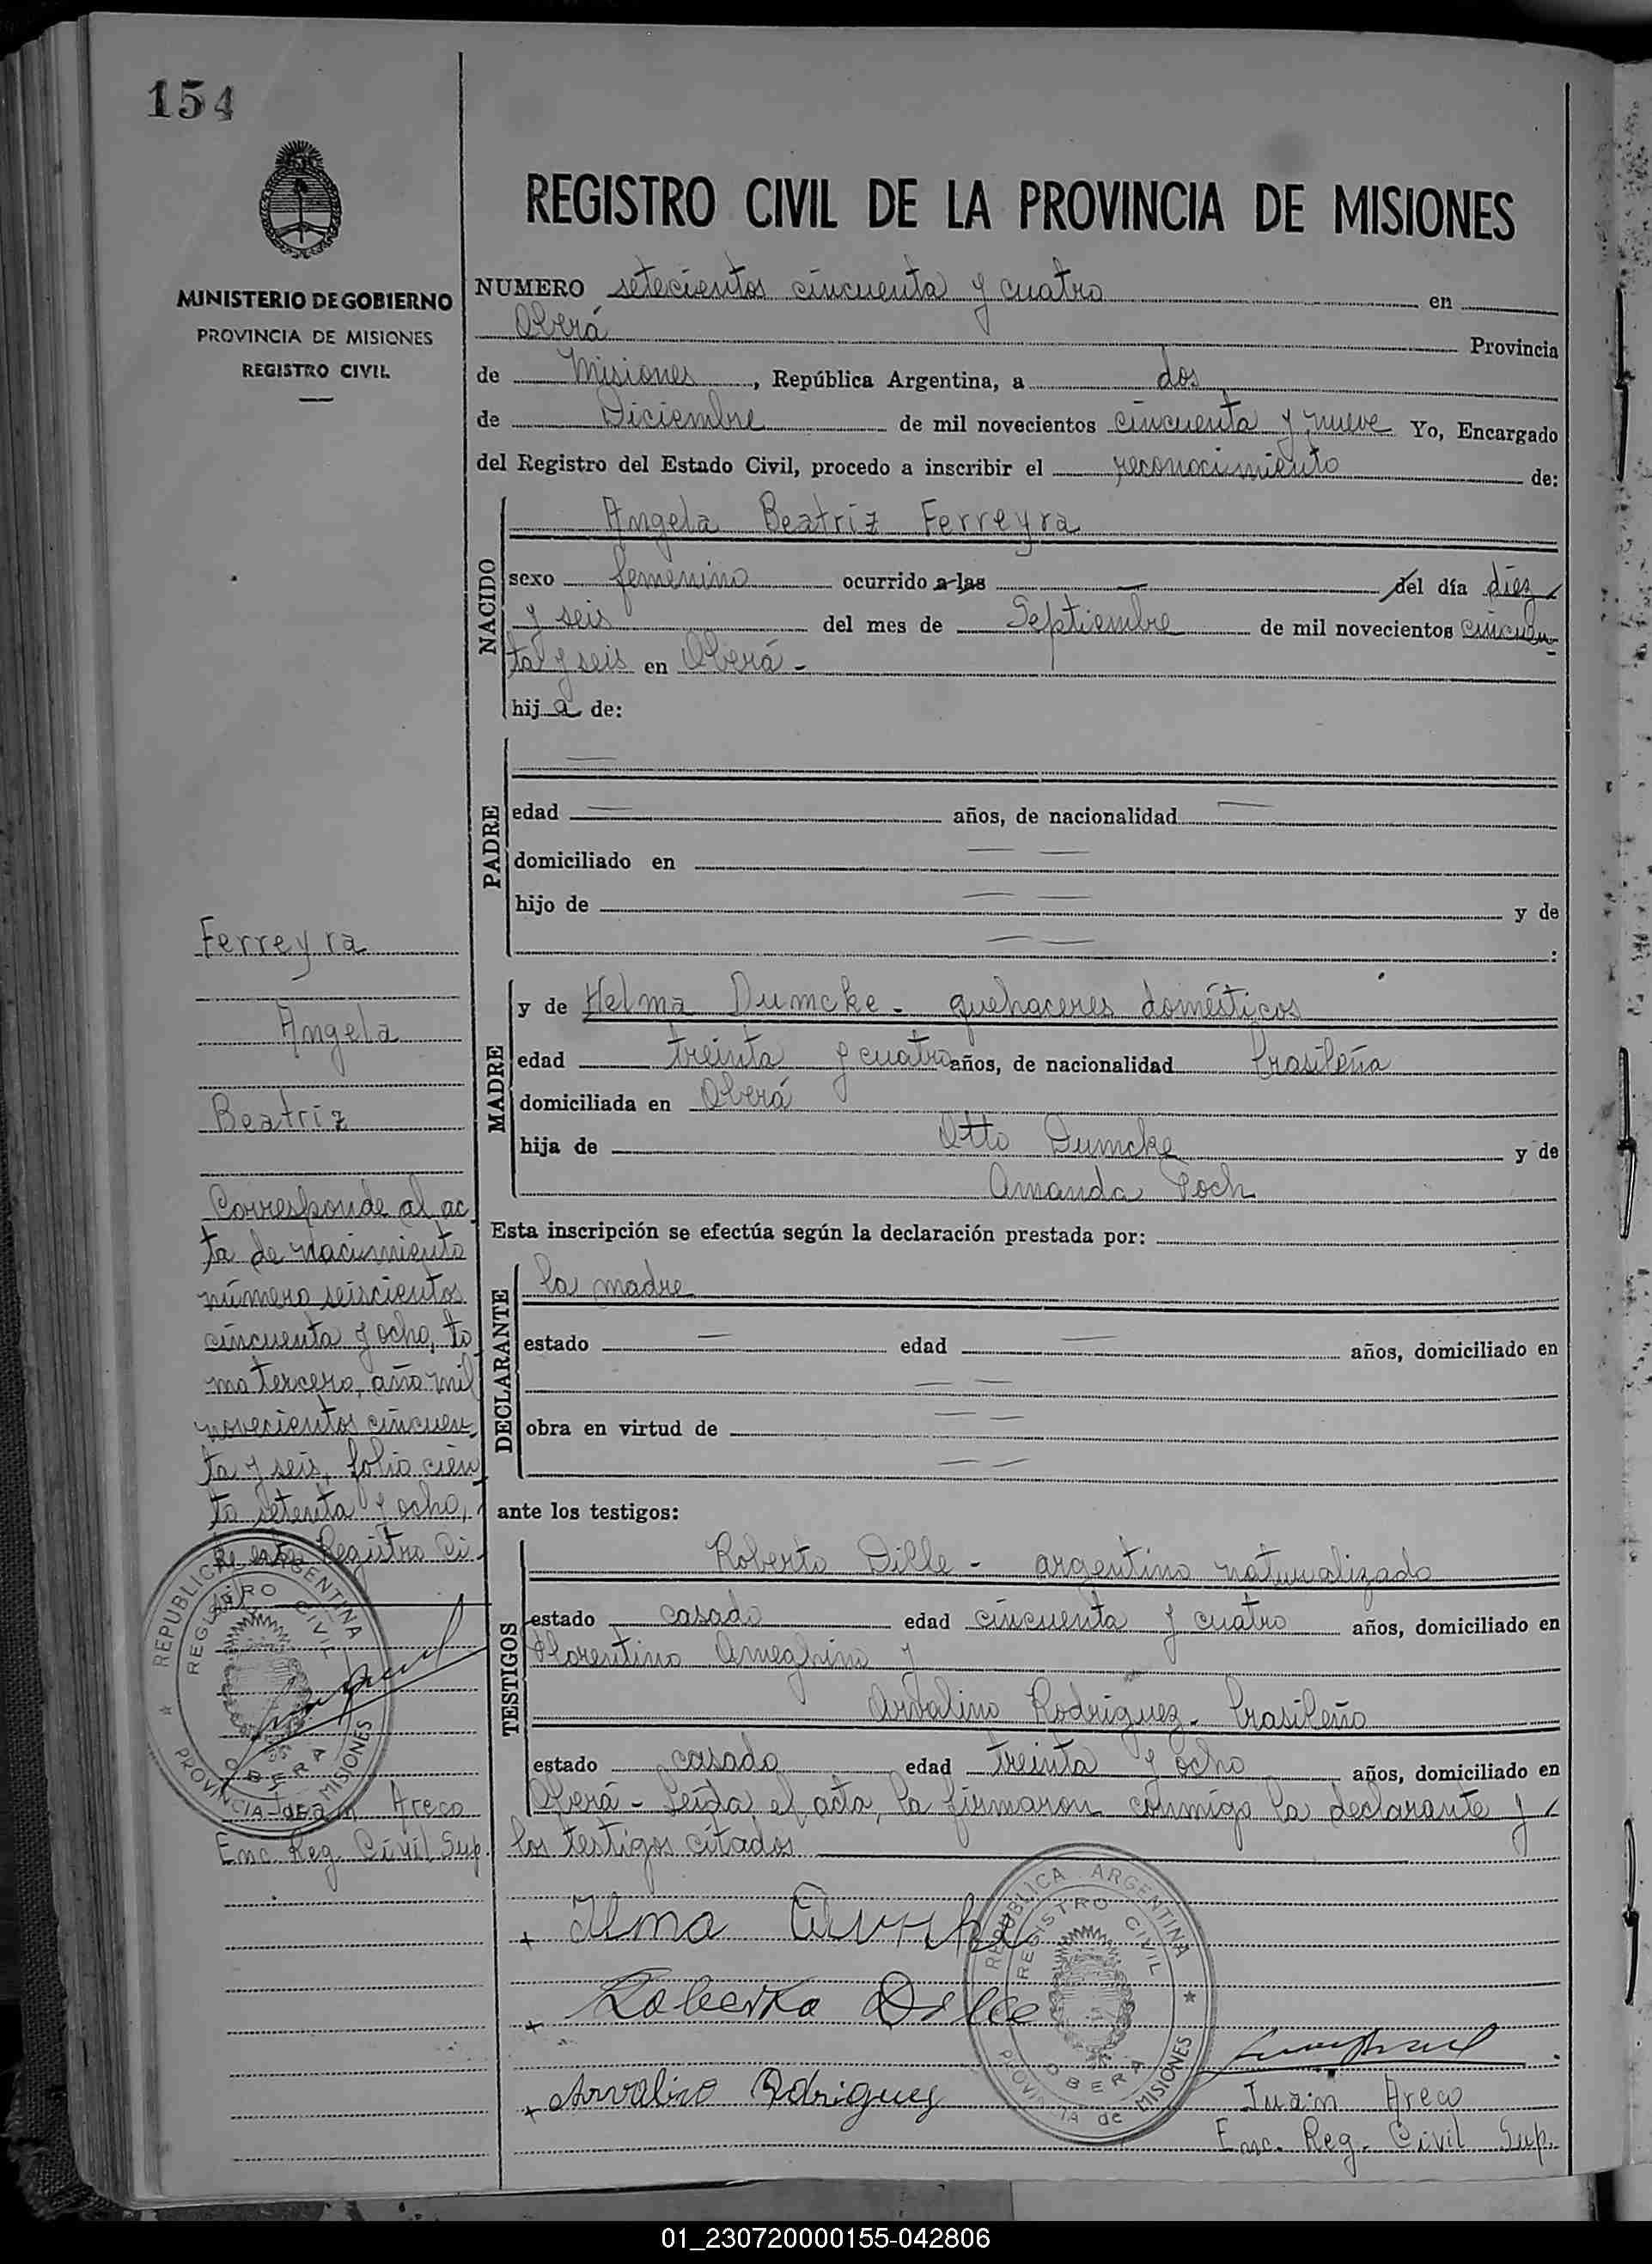 154
MINISTERIO DE GOBIERNO
PROVINCIA DE MISIONES
REGISTRO CIVIL
REGISTRO CIVIL DE LA PROVINCIA DE MISIONES
NUMERO setecientos cincuenta y cuatro en
Oberá Provincia
de Misiones, República Argentina, a dos
de Diciembre de mil novecientos cincuenta y nueve Yo, Encargado
del Registro del Estado Civil, procedo a inscribir el reconocimiento de:
NACIDO
Angela Beatriz Ferreyra
sexo femenino ocurrido a las — del día diez
y seis del mes de Septiembre de mil novecientos cincuen-
ta y seis en Oberá -
hija de:
PADRE
—
edad — años, de nacionalidad —
domiciliado en — —
hijo de — — y de
— — :
MADRE
y de Helma Dumcke - quehaceres domésticos
edad treinta y cuatro años, de nacionalidad brasileña
domiciliada en Oberá
hija de Otto Dumcke y de
Amanda Poch
Esta inscripción se efectúa según la declaración prestada por:
DECLARANTE
la madre
estado — edad — años, domiciliado en
— —
obra en virtud de — —
— —
ante los testigos:
TESTIGOS
Roberto Dille - argentino naturalizado
estado casado edad cincuenta y cuatro años, domiciliado en
Florentino Ameghino y
Arvalino Rodriguez - brasileño
estado casado edad treinta y ocho años, domiciliado en
Oberá - Leída el acta, la firmaron conmigo la declarante y
los testigos citados
+ Ilma
+ Roberto Dille
+ Arvalino Rodriguez
Juan Areco
Enc. Reg. Civil Sup.
REPUBLICA ARGENTINA
REGISTRO CIVIL
OBERA
PROVINCIA de MISIONES
Ferreyra
Angela
Beatriz
Corresponde al ac
ta de nacimiento
número seiscientos
cincuenta y ocho, to
mo tercero, año mil
novecientos cincuen
ta y seis, folio cien
to setenta y ocho,
de este Registro Ci
vil
REPUBLICA ARGENTINA
REGISTRO CIVIL
OBERA
PROVINCIA de MISIONES
Juan Areco
Enc. Reg. Civil Sup.
01_230720000155-042806